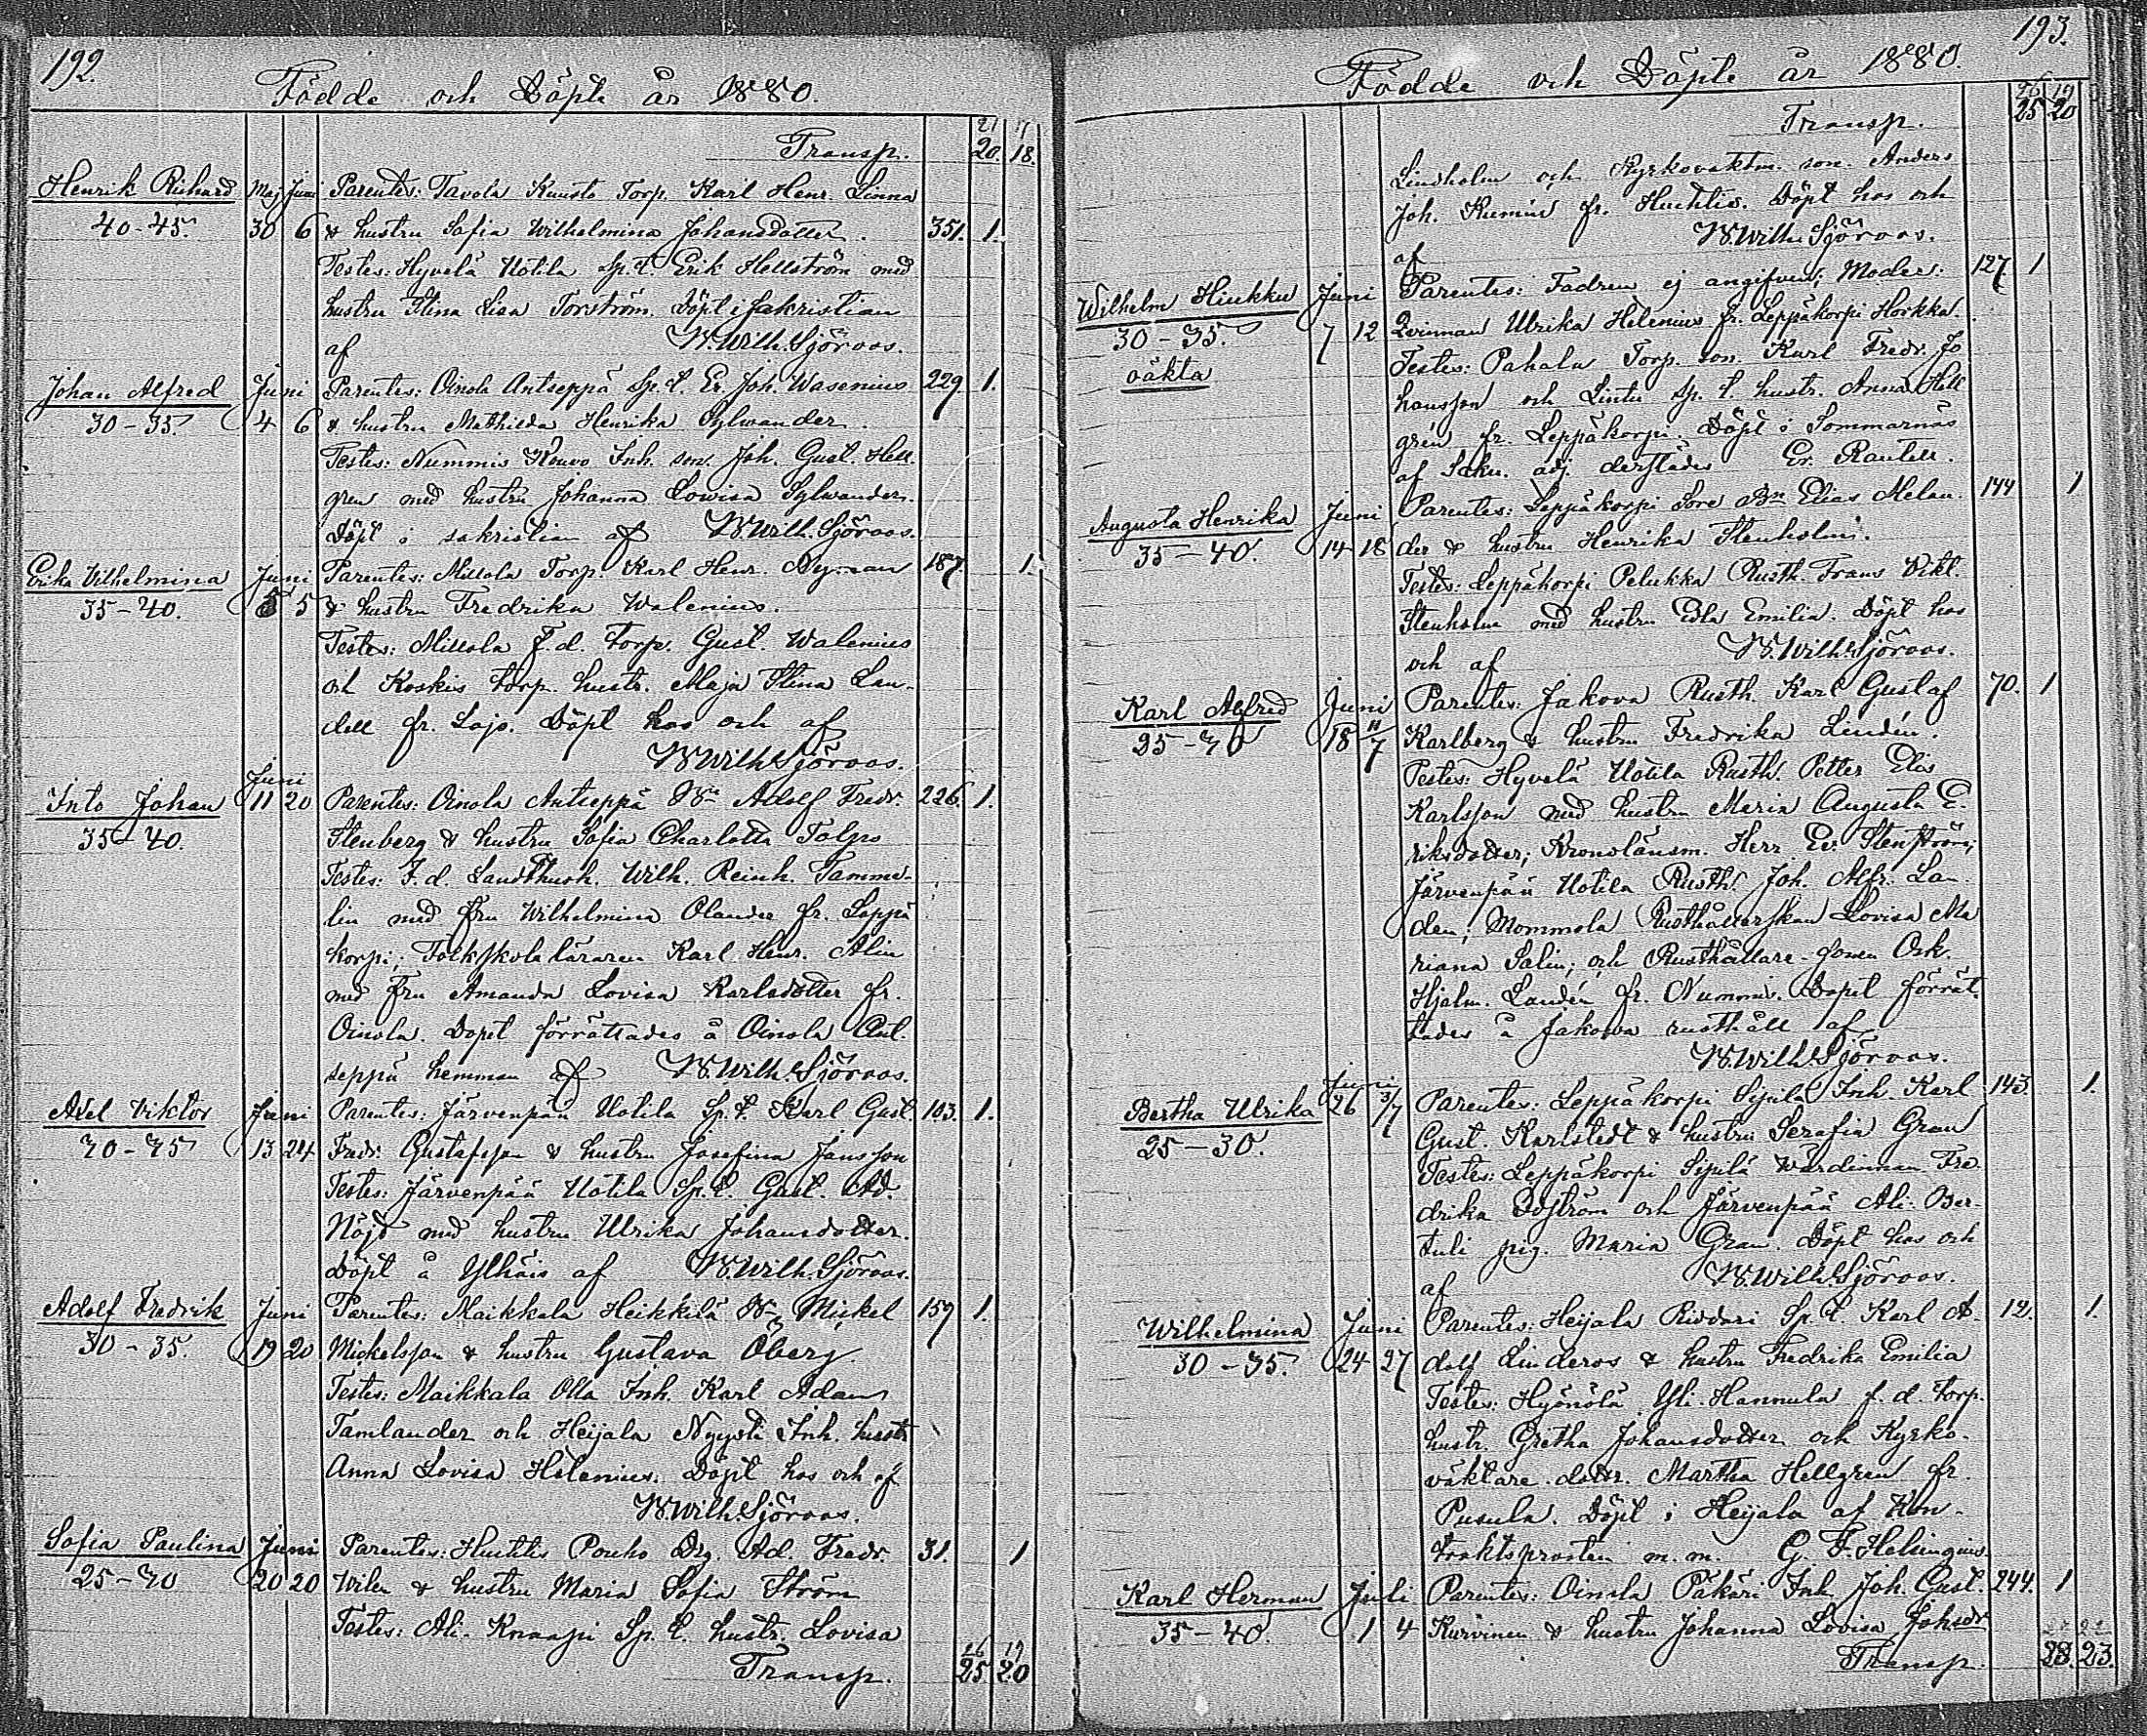 192.
Födde och Döpte år 1880.
21 17
Transp. 20. 18.
Henrik Richard Maj Juni Parentes: Tavola Kuusto Torp. Karl Henr. Linna
40-45. 30 6 & hustru Sofia Wilhelmina Johansdotter. 351. 1.
Testes: Hyvelä Uotila Sp.t. Erik Hellström med
hustru Stina Lisa Torström. Döpt i sakristian
af W. Wilh. Sjöroos.
Johan Alfred Juni Parentes: Oinola Antseppä Sp.t. Er. Joh. Wasenius 229. 1.
30-35. 4 6 & hustru Mathilda Henrika Sylwander.
Testes: Nummis Kouvo Inh. son. Joh. Gust. Hell-
gren med hustru Johanna Lowisa Sylwander.
Döpt i sakristian af W. Wilh. Sjöroos.
Erika Vilhelmina Juni Parentes: Millola Torp. Karl Henr. Nyman 187 1.
35-40. 5 5 & hustru Fredrika Walenius.
Testes: Millola F.d. Torp. Gust. Walenius
och Koskis torp. hustr. Maja Stina Lan-
dell fr. Lojo. Döpt hos och af
W. Wilh. Sjöroos.
Juni
Into Johan 11 20 Parentes: Oinola Antseppä Adolf Fredr. 226. 1.
35-40. Stenberg & hustru Sofia Charlotta Tolpo
Testes: F.d. Landthush. Wilh. Reinh. Tamme-
lin med fru Wilhelmina Olander fr. Leppä
korpi; Folkskoleläraren Karl Henr. Alin
med fru Amanda Lovisa Karlsdotter fr.
Oinola. Dopet förrättades å Oinola Ant-
seppä hemman af W. Wilh. Sjöroos.
Axel Viktor Juni Parentes: Järvenpää Uotila Sp.t. Karl Gust. 103. 1.
30-35 13 24 Fredr. Gustafsson & hustru Josefina Jansson
Testes: Järvenpää Uotila Sp.t. Gust. Ad.
Nöjd med hustru Ulrika Johansdotter.
Döpt å Ylhäis af W. Wilh. Sjöroos.
Adolf Fredrik Juni Parentes: Maikkala Heikkilä Mickel 159 1.
30-35. 19 20 Mickelsson & hustru Gustava Öberg.
Testes: Maikkala Olla Inh. Karl Adam
Tamlander och Heijala Nyysti Inh. hustr.
Anna Lovisa Helenius. Döpt hos och af
W. Wilh. Sjöroos.
Sofia Paulina Juni Parentes: Huhtis Pouho Drg. Ad. Fredr. 31. 1
25-30 20 20 Wilen & hustru Maria Sofia Ström
Testes: Ali-Knaapi Sp.t. hustr. Lovisa
26 19
Transp. 25. 20
193.
Födde och Döpte år 1880.
26 19
Transp. 25 20
Lindholm och Kyrkovaktm. son. Anders
Joh. Kumin fr. Huhtis. Döpt hos och
af W. Wilh. Sjöroos.
Wilhelm Hiukku Juni Parentes: Fadren ej angifven; Moder: 127 1
30-35. 7 12 Qvinnan Ulrika Helenius fr. Leppäkorpi Horkka.
oäkta Testes: Pahala Torp. son. Karl Fredr. Jo
hansson och Lintu Sp.t. hustr. Anna Hell
grén fr. Leppäkorpi. Döpt i Sommarnäs
af Sakn. adj. derstädes Er. Rantell.
Augusta Henrika Juni Parentes: Leppäkorpi Sore Bn Elias Melan- 144 1
35-40. 14 18 der & hustru Henrika Stenholm.
Testes: Leppäkorpi Pelukka Rusth. Frans Vikt.
Stenholm med hustru Edla Emilia. Döpt hos
och af W. Wilh. Sjöroos.
Karl Alfred Juni Parentes: Jakova Rusth. Karl Gustaf 70. 1
25-30 18 11/7 Karlberg & hustru Fredrika Lindén.
Testes: Hyvelä Uotila Rusth. Petter Elis
Karlsson med hustru Maria Augusta E-
riksdotter; Kronolänsm. Herr Er. Stenström;
Järvenpää Uotila Rusth. Joh. Alfr. Lan-
den; Mommola Rusthållarskan Lovisa Ma
riana Salin; och Rusthållare-sonen Osk.
Hjalm. Landén fr. Nummis. Dopet förrät-
tades å Jakova rusthåll af
W. Wilh. Sjöroos.
Bertha Ulrika Juni 26 3/7 Parentes: Leppäkorpi Sipilä Inh. Karl 143. 1.
25-30. Gust. Karlstedt & hustru Serafia Gran
Testes: Leppäkorpi Sipilä Wärdinnan Fre
drika Boström och Järvenpää Ali-Ber-
tuli pig. Maria Gran. Döpt hos och
af W. Wilh. Sjöroos.
Wilhelmina Juni Parentes: Heijala Riddari Sp.t. Karl A- 12. 1.
30-35. 24 27 dolf Linderos & hustru Fredrika Emilia
Testes: Hyönölä Yli-Hannula f.d. torp.
hustr. Gretha Johansdotter och Kyrko-
väktare dotr. Martha Hellgren fr.
Pusula. Döpt i Heijala af Kon-
traktsprosten m.m. G. F. Helsingius.
Karl Herman Juli Parentes: Oinola Päkäri Inh. Joh. Gust. 244. 1
35-40. 1 4 Kurvinen & hustru Johanna Lovisa Johsdr
Transp. 28. 23.